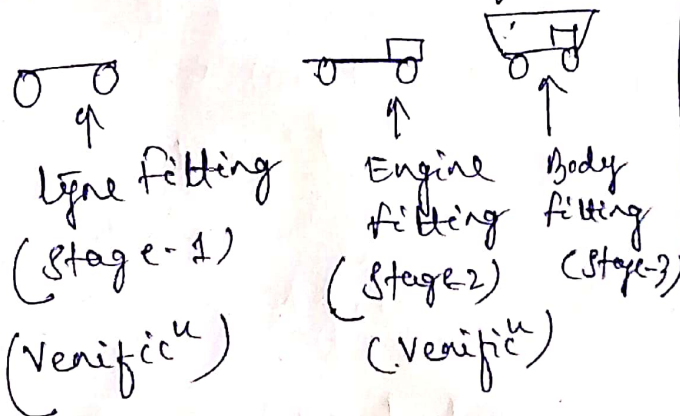 Tyre fitting
(Stage-1)
(Verificⁿ)
Engine
fitting
(Stage-2)
(Verificⁿ)
Body
fitting
(Stage-3)